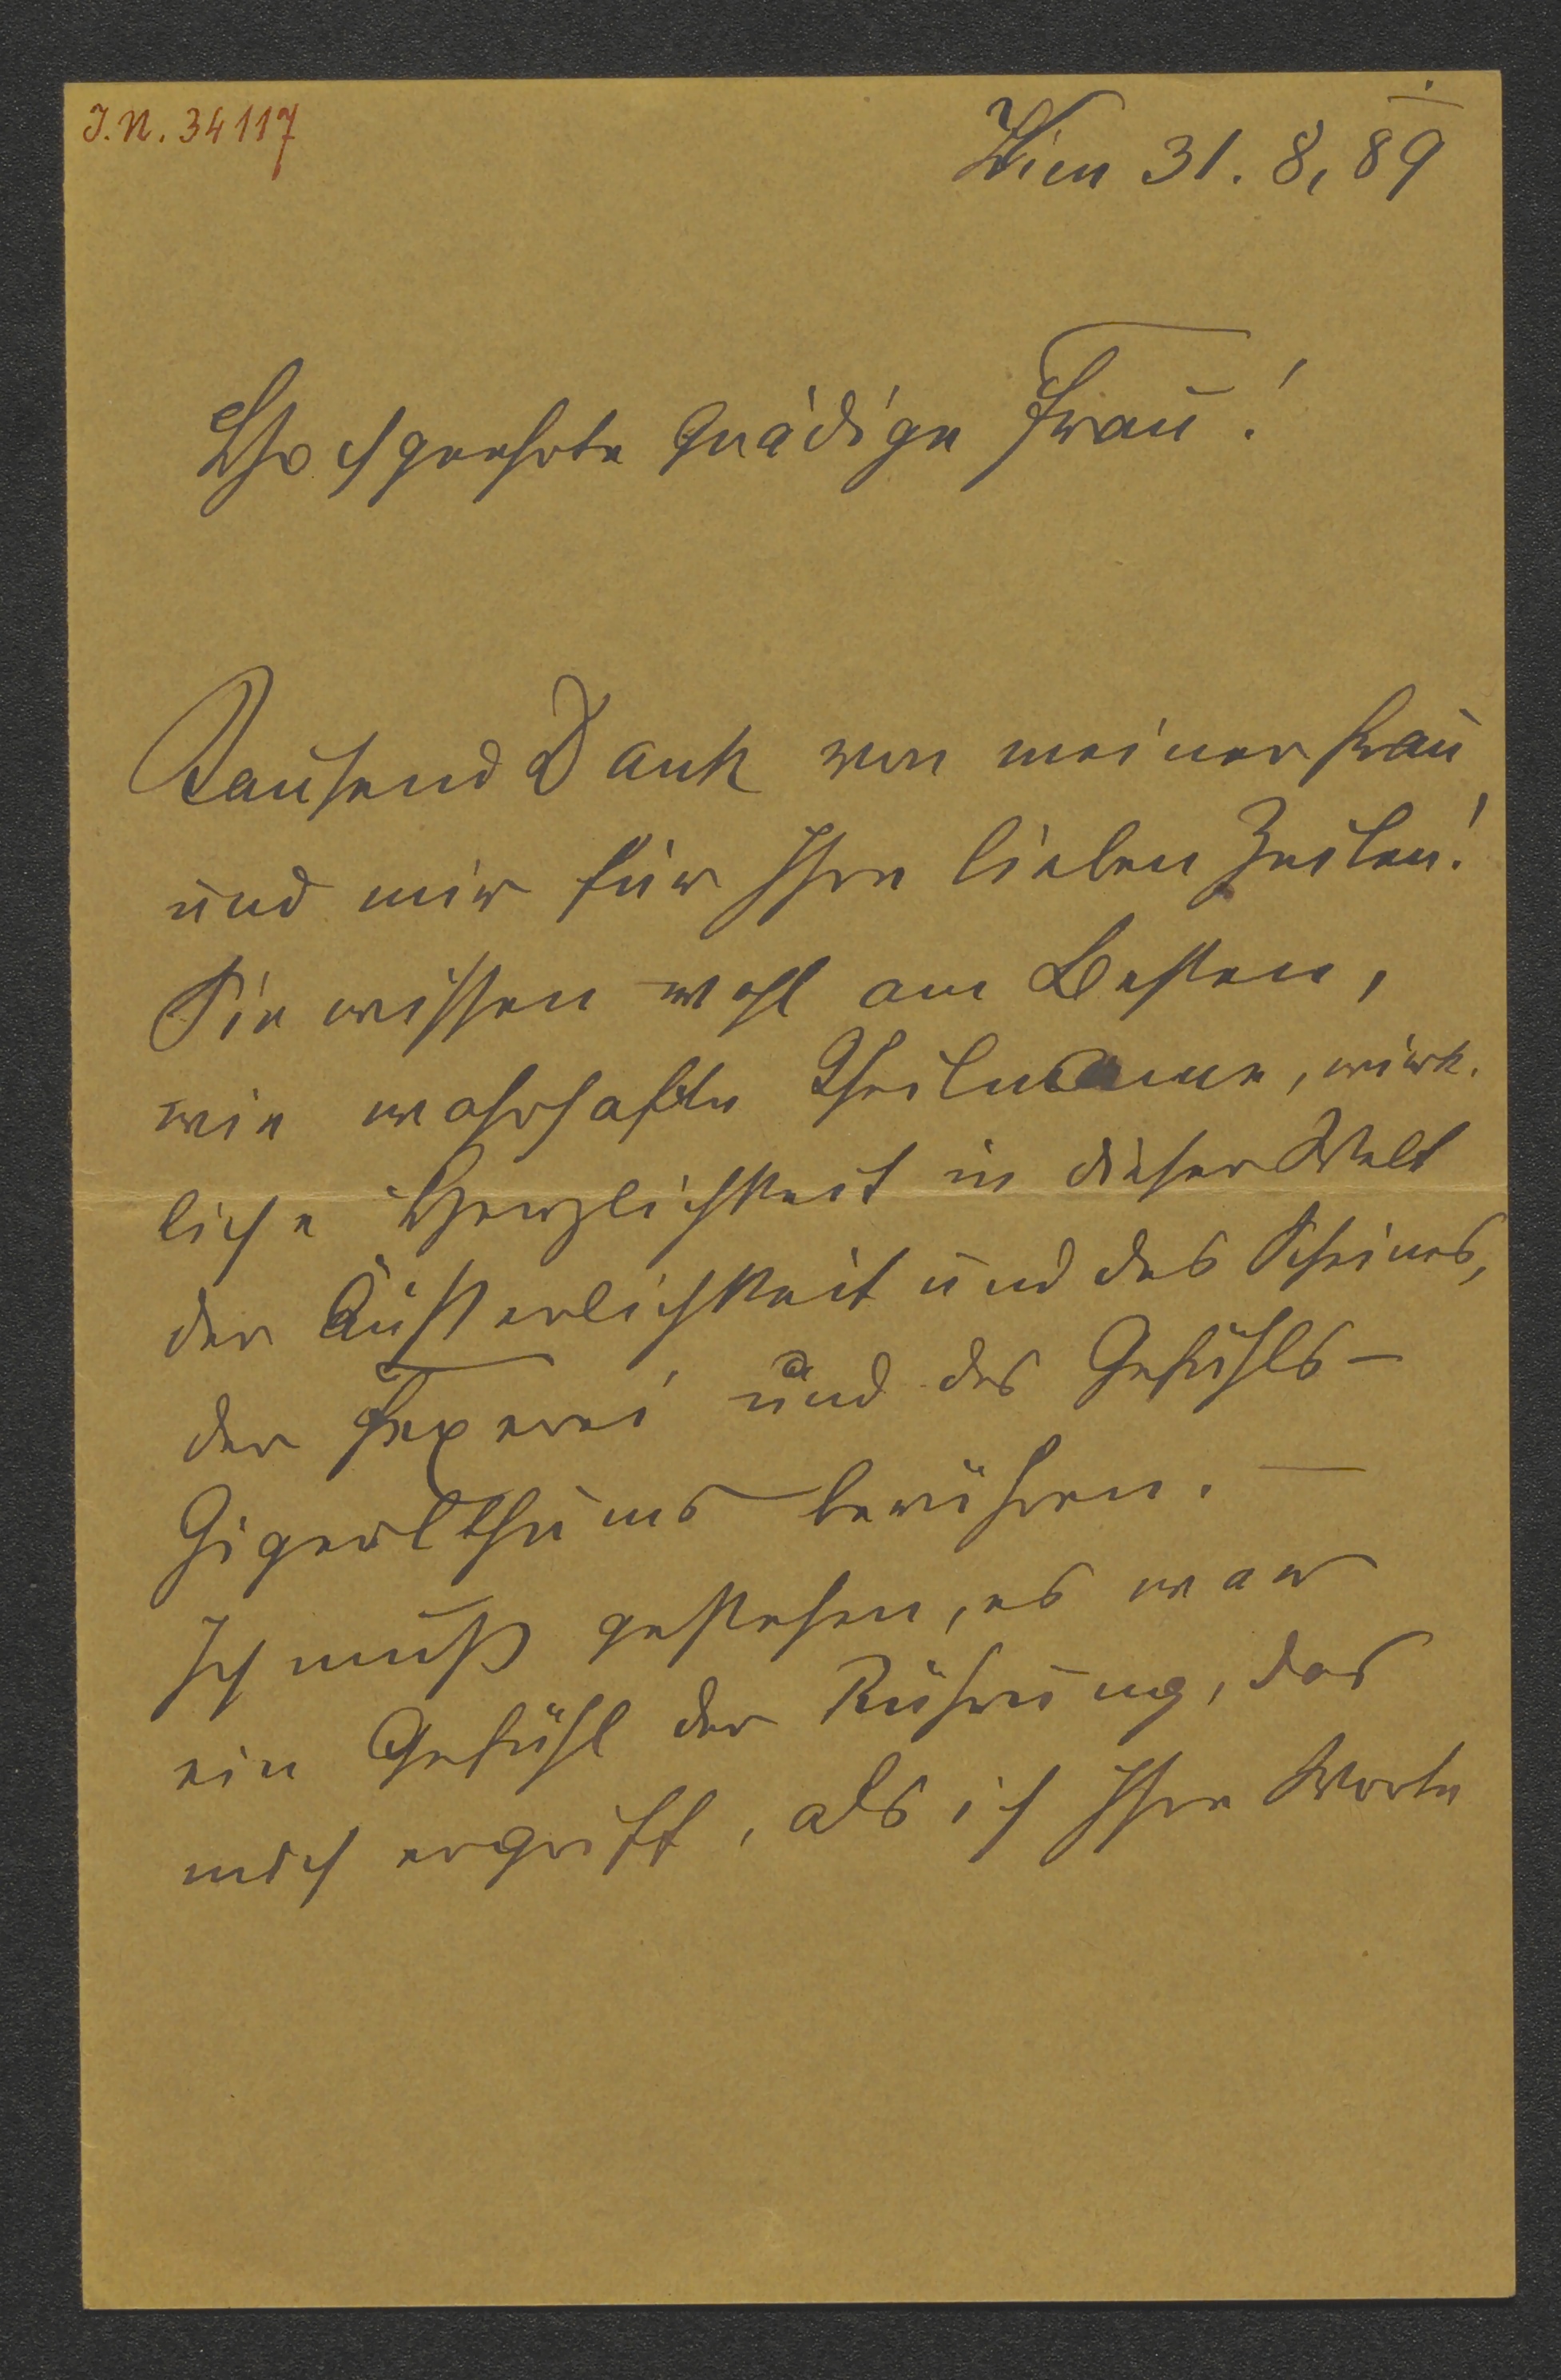 J.N. 34117
Wien 31. 8, 89
Hochgeehrte Gnädige Frau!
Tausend Dank von meiner Frau
und mir für Ihre lieben Zeilen!
Sie wissen wohl am Besten,
wie wahrhafte Theilname, wirk-
liche Herzlichkeit in dieser Welt
der Äußerlichkeit und des Scheines,
der Fexerei und des Gefühls-
Gigerlthums berühren. —
Ich muß gestehen, es war
ein Gefühl der Rührung, das
mich ergriff, als ich Ihre Worte